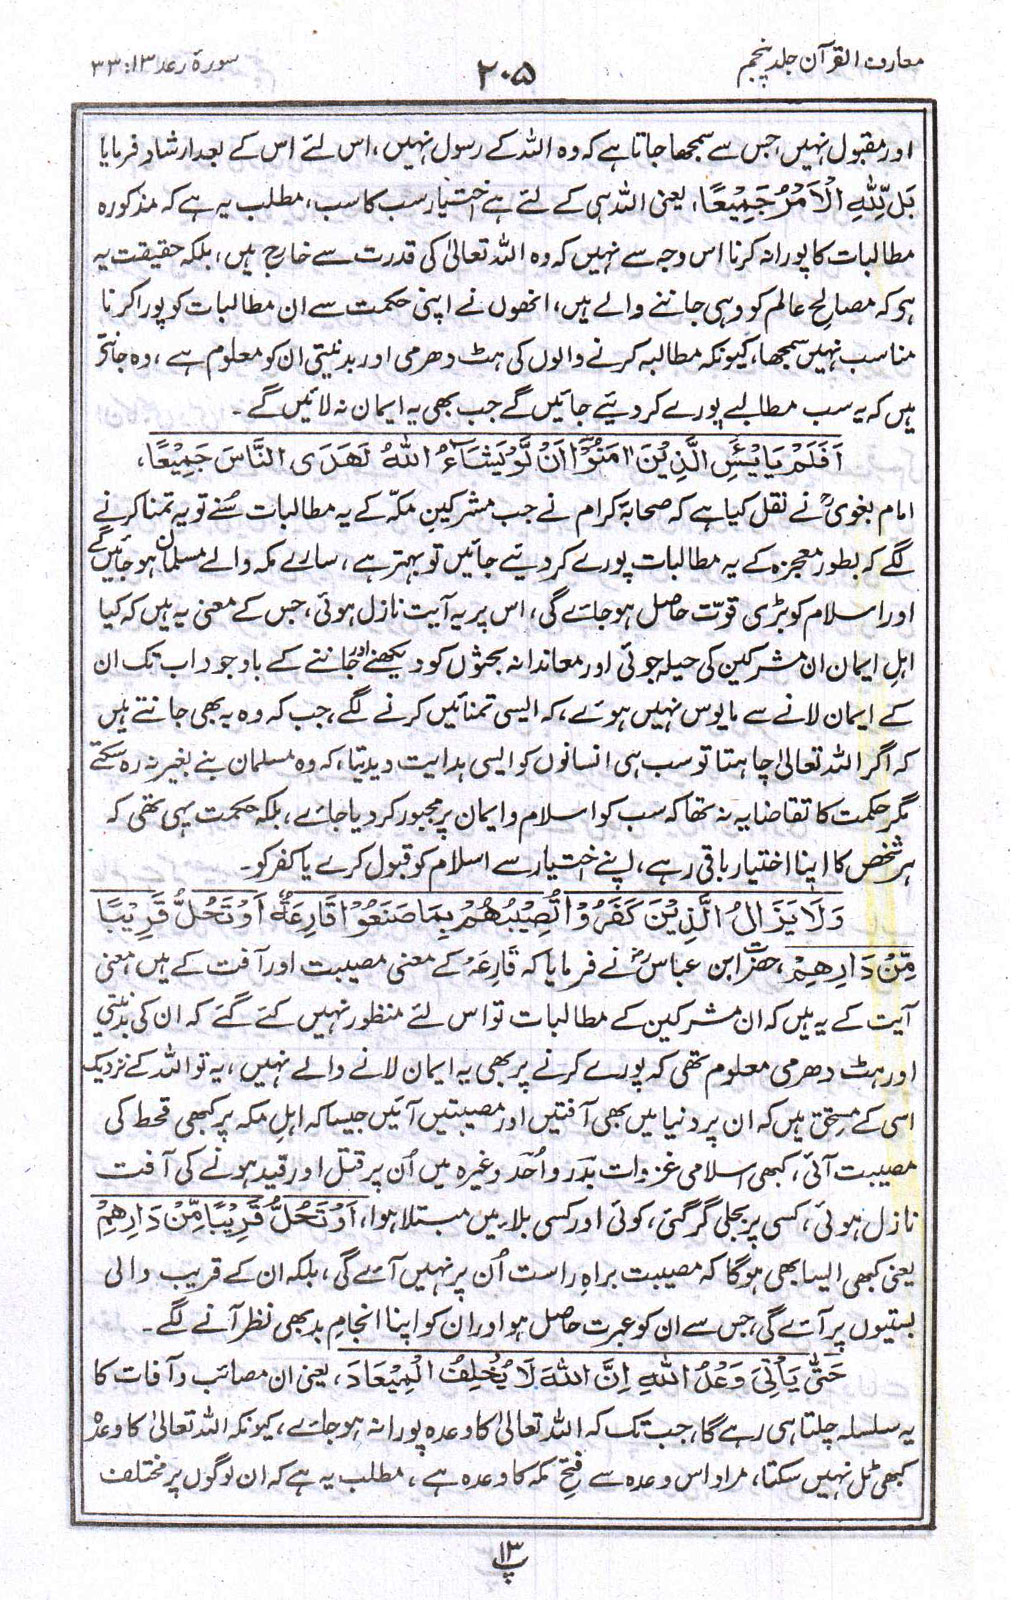 معارف القرآن جلد پنجم
۲۰۵
سورۃ رعد ۱۳: ۳۳
اور مقبول نہیں، جس سے سمجھا جاتا ہے کہ وہ اللہ کے رسول نہیں، اس لئے اس کے بعد ارشاد فرمایا
بَلْ لِّلّٰہِ الْاَمْرُ جَمِیْعًا، یعنی اللہ ہی کے لئے ہے اختیار سب کا سب، مطلب یہ ہے کہ مذکورہ
مطالبات کا پورا نہ کرنا اس وجہ سے نہیں کہ وہ اللہ تعالیٰ کی قدرت سے خارج ہیں، بلکہ حقیقت یہ
ہو کہ مصالحِ عالم کو وہی جاننے والے ہیں، انھوں نے اپنی حکمت سے ان مطالبات کو پورا کرنا
مناسب نہیں سمجھا، کیونکہ مطالبہ کرنے والوں کی ہٹ دھرمی اور بدنیتی ان کو معلوم ہے، وہ جانتے
ہیں کہ یہ سب مطالبے پورے کر دیئے جائیں گے جب بھی یہ ایمان نہ لائیں گے۔
اَفَلَمْ یَایْئَسِ الَّذِیْنَ اٰمَنُوْٓا اَنْ لَّوْ یَشَآءُ اللّٰہُ لَھَدَی النَّاسَ جَمِیْعًا،
امام بغویؒ نے نقل کیا ہے کہ صحابۂ کرام نے جب مشرکینِ مکّہ کے یہ مطالبات سُنے تو یہ تمنا کرنے
لگے کہ بطور معجزہ کے یہ مطالبات پورے کر دیئے جائیں تو بہتر ہے، سارے مکہ والے مسلمان ہو جائیں گے
اور اسلام کو بڑی قوّت حاصل ہو جائے گی، اس پر یہ آیت نازل ہوئی، جس کے معنی یہ ہیں کہ کیا
اہلِ ایمان ان مشرکین کی حیلہ جوئی اور معاندانہ بحثوں کو دیکھنے اور جاننے کے باوجود اب تک ان
کے ایمان لانے سے مایوس نہیں ہوئے، کہ ایسی تمنائیں کرنے لگے، جب کہ وہ یہ بھی جانتے ہیں
کہ اگر اللہ تعالیٰ چاہتا تو سب ہی انسانوں کو ایسی ہدایت دیدیتا، کہ وہ مسلمان بنے بغیر نہ رہ سکتے
مگر حکمت کا تقاضا یہ نہ تھا کہ سب کو اسلام و ایمان پر مجبور کر دیا جائے، بلکہ حکمت یہی تھی کہ
ہر شخص کا اپنا اختیار باقی رہے، اپنے اختیار سے اسلام کو قبول کرے یا کفر کو۔
وَلَا یَزَالُ الَّذِیْنَ کَفَرُوْا تُصِیْبُھُمْ بِمَا صَنَعُوْا قَارِعَۃٌ اَوْ تَحُلُّ قَرِیْبًا
مِّنْ دَارِھِمْ، حضرت ابن عباسؓ نے فرمایا کہ قَارِعَہ کے معنی مصیبت اور آفت کے ہیں، معنی
آیت کے یہ ہیں کہ ان مشرکین کے مطالبات تو اس لئے منظور نہیں کئے گئے کہ ان کی بدنیتی
اور ہٹ دھرمی معلوم تھی کہ پورے کرنے پر بھی یہ ایمان لانے والے نہیں، یہ تو اللہ کے نزدیک
اسی کے مستحق ہیں کہ ان پر دنیا میں بھی آفتیں اور مصیبتیں آئیں جیسا کہ اہلِ مکہ پر کبھی قحط کی
مصیبت آئی، کبھی اسلامی غزوات بدر و اُحد وغیرہ میں اُن پر قتل اور قید ہونے کی آفت
نازل ہوئی، کسی پر بجلی گر گئی، کوئی اور کسی بلاء میں مبتلا ہوا، اَوْ تَحُلُّ قَرِیْبًا مِّنْ دَارِھِمْ
یعنی کبھی ایسا بھی ہوگا کہ مصیبت براہِ راست اُن پر نہیں آئے گی، بلکہ ان کے قریب والی
بستیوں پر آئے گی، جس سے ان کو عبرت حاصل ہو اور ان کو اپنا انجامِ بد بھی نظر آنے لگے۔
حَتّٰی یَاْتِیَ وَعْدُ اللّٰہِ اِنَّ اللّٰہَ لَا یُخْلِفُ الْمِیْعَادَ، یعنی ان مصائب و آفات کا
یہ سلسلہ چلتا ہی رہے گا، جب تک کہ اللہ تعالیٰ کا وعدہ پورا نہ ہو جائے، کیونکہ اللہ تعالیٰ کا وعدہ
کبھی ٹل نہیں سکتا، مراد اس وعدہ سے فتح مکہ کا وعدہ ہے، مطلب یہ ہے کہ ان لوگوں پر مختلف
پ ۱۳